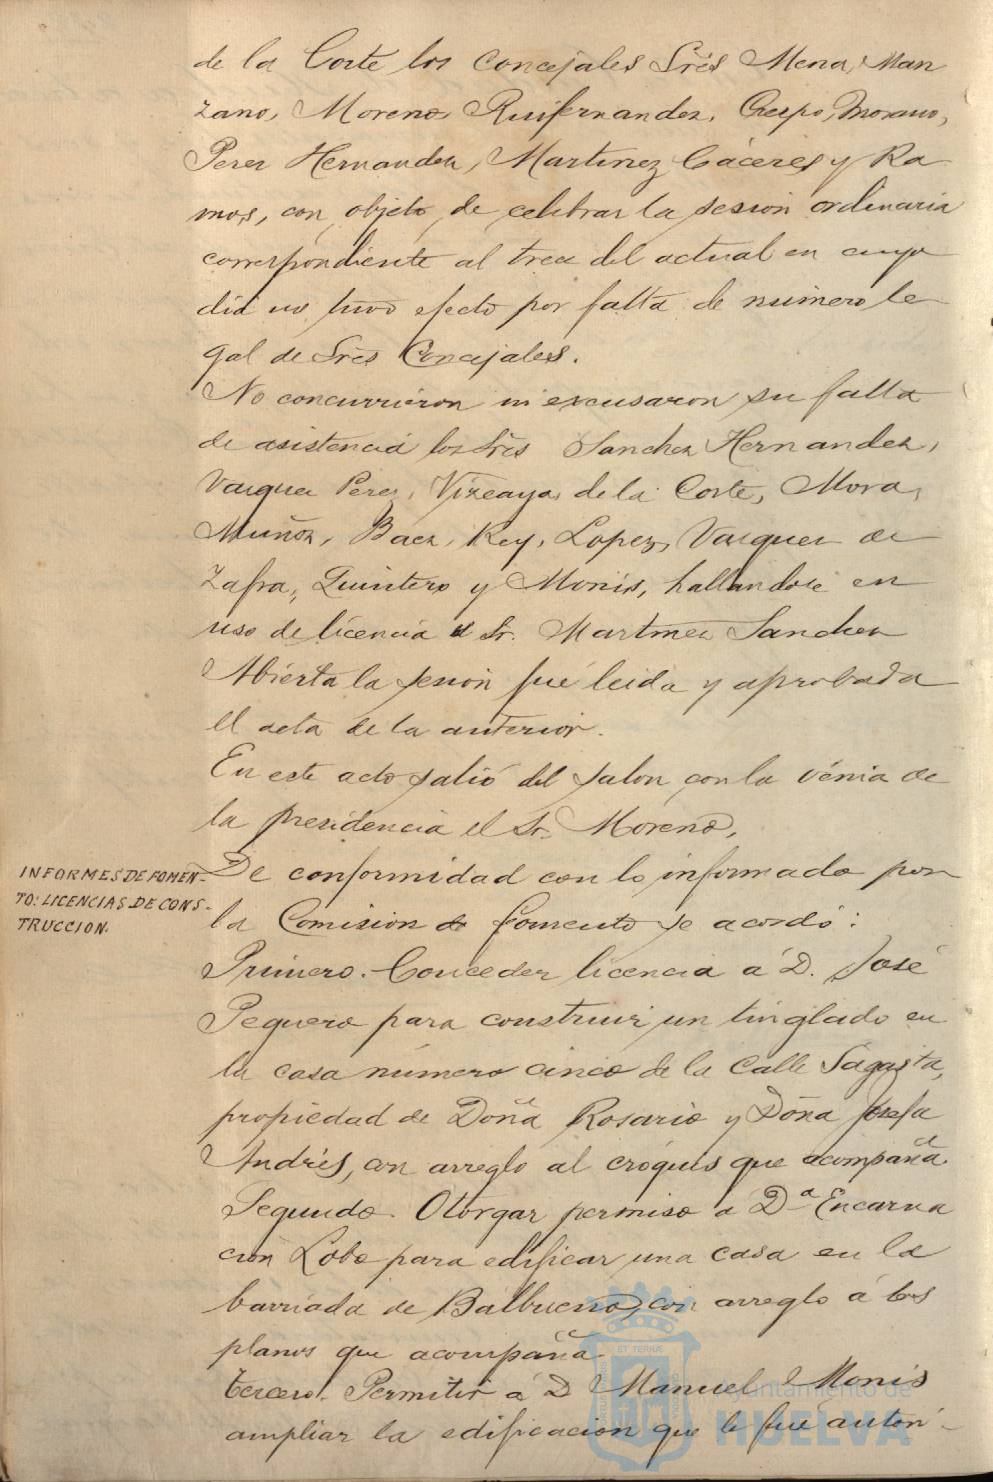 de la Corte los Concejales Sres Mena, Man
zano, Moreno, Ruifernandez, Crespo, Morano,
Perez Hernandez, Martinez Cáceres y Ra
mos, con objeto de celebrar la sesion ordinaria
correspondiente al trece del actual en cuyo
dia no tuvo efecto por falta de número le
gal de Sres Concejales.
No concurrieron ni excusaron su falta
de asistencia los Sres Sanchez Hernandez,
Vazquez Perez, Vizcaya, de la Corte, Mora,
Muñoz, Baez, Rey, Lopez, Vazquez de
Zafra, Quintero y Monis, hallandose en
uso de licencia el Sr. Martinez Sanchez
Abierta la sesion fué leida y aprobada
el acta de la anterior.
En este acto salió del salon con la vénia de
la presidencia el Sr. Moreno,
INFORMES DE FOMEN-
TO: LICENCIAS DE CONS-
TRUCCION.
De conformidad con lo informado por
la Comision de Fomento se acordó:
Primero. Conceder licencia á D. José
Peguero para construir un tinglado en
la casa número cinco de la Calle Sagasta,
propiedad de Doña Rosario y Doña Josefa
Andrés, con arreglo al cróquis que acompaña.
Segundo. Otorgar permiso a Dª Encarna
cion Lobo para edificar una casa en la
barriada de Balbueno, con arreglo á los
planos que acompaña.
tercero. Permitir á D Manuel Monis
ampliar la edificacion que le fué autori-
Ayuntamiento de
HUELVA